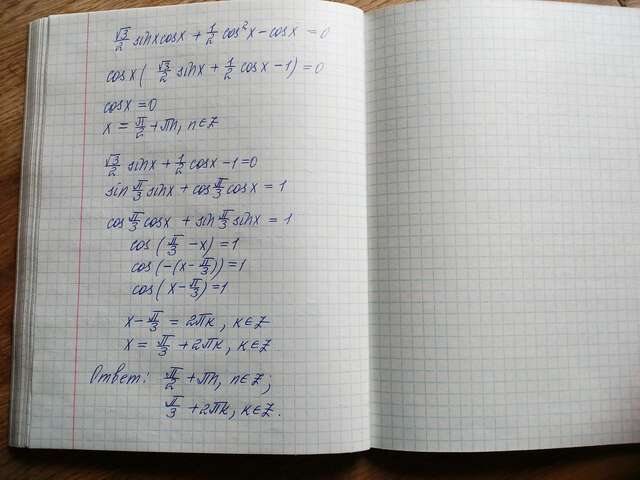 √3/2 sinx cosx + 1/2 cos²x - cosx = 0
cosx( √3/2 sinx + 1/2 cosx - 1) = 0
cosx = 0
x = π/2 + πn, n∈Z
√3/2 sinx + 1/2 cosx - 1 = 0
sin π/3 sinx + cos π/3 cosx = 1
cos π/3 cosx + sin π/3 sinx = 1
cos( π/3 - x) = 1
cos(-(x - π/3)) = 1
cos( x - π/3) = 1
x - π/3 = 2πk, k∈Z
x = π/3 + 2πk, k∈Z
Ответ: π/2 + πn, n∈Z;
π/3 + 2πk, k∈Z.